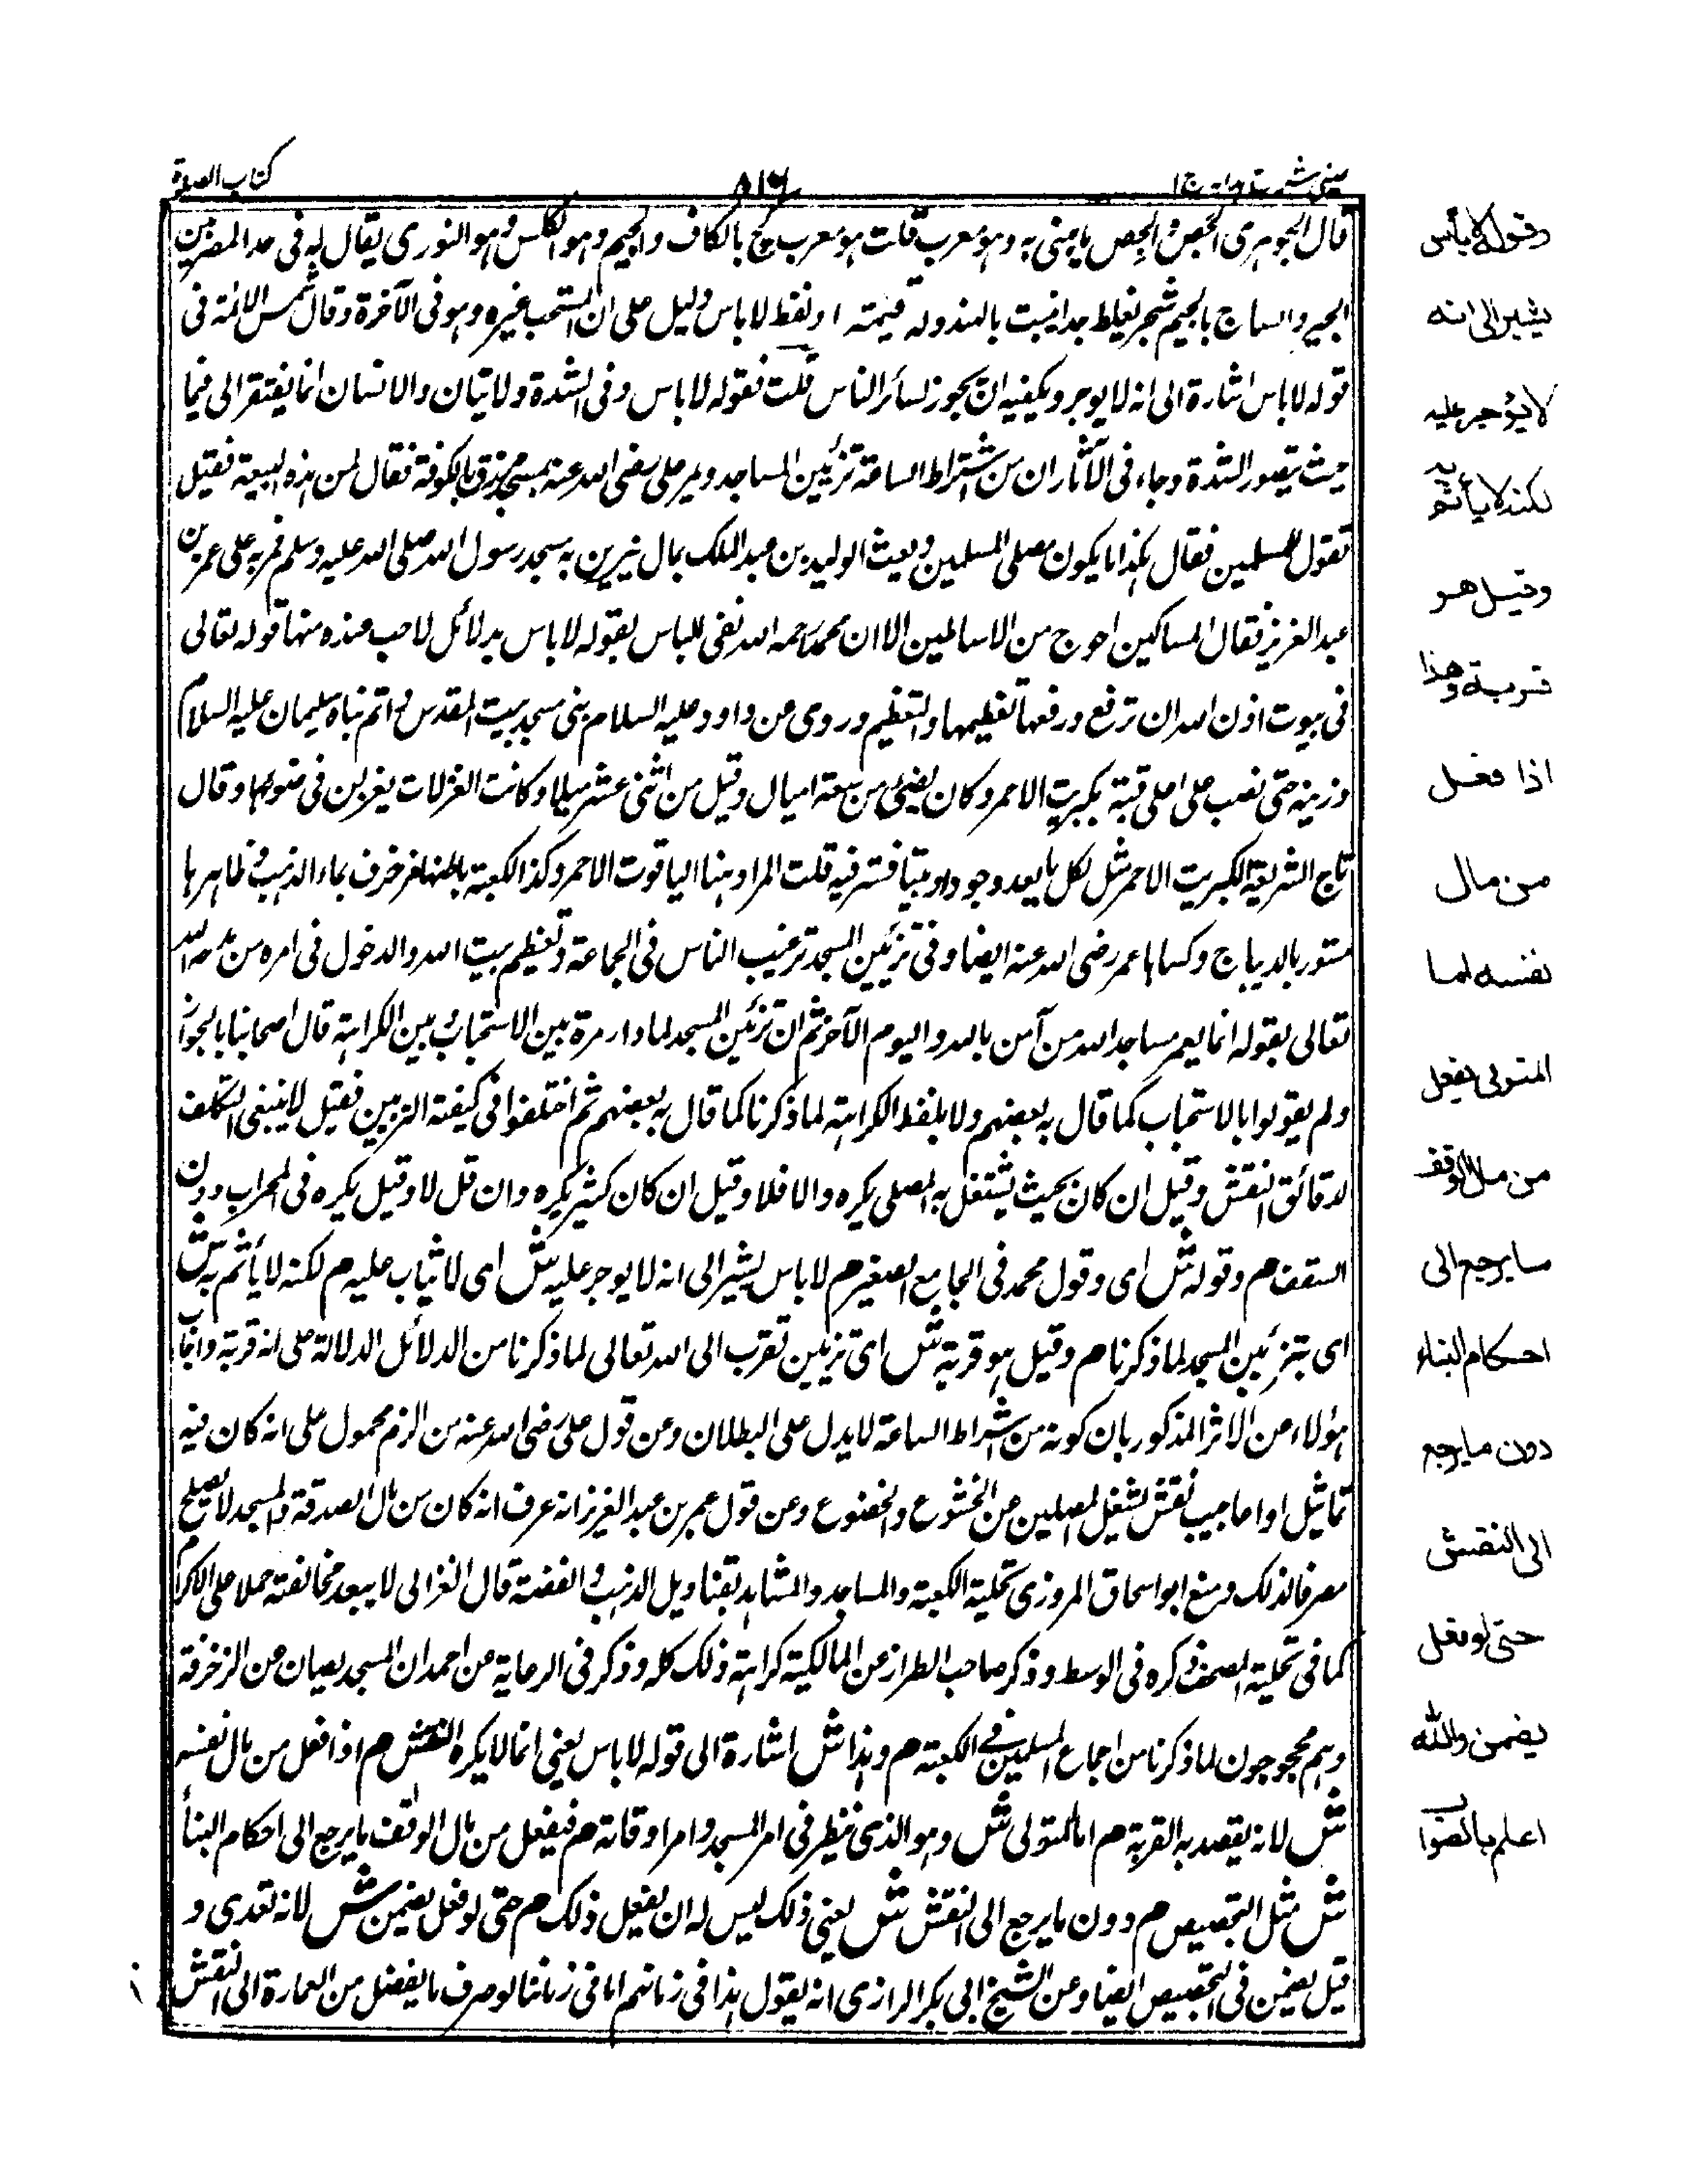 عینی شرح ہدایہ ج ا
٨١٦
کتاب الصلوۃ
قال الجوہری الجَص والجِص ما یبنی بہ وہو معرب قلت ہو معرب کج بالکاف والجیم وہو الکلس وہو النوری یقال لہ فی ہذا المصرین
الجیر والساج بالجیم شجر یغلظ جدا ینبت بالہند ولہ قیمتہ ا ولفظ لا باس دلیل علی ان المستحب غیرہ وہو فی الآخرۃ وقال شمس الائمۃ فی
قولہ لا باس اشارۃ الی انہ لا یوجر ویکفیہ ان یجوز لسائر الناس قلت فقولہ لا باس وفی الشدۃ ولا تیان والانسان انما یفتقر الی فیما
حیث یتصور الشدۃ وجاء فی الآثار ان من اشتراط الساعۃ تزئین المساجد ومر علی رضی اللہ عنہ بمسجد مزخرق بالکوفۃ فقال لمن ہذہ البیعۃ فقیل
تقول للمسلمین فقال ہکذا ما یکون مصلی المسلمین وبعث الولید بن عبد الملک بمال یزین بہ مسجد رسول اللہ صلی اللہ علیہ وسلم فمر بہ علی عمر بن
عبد العزیز فقال المساکین احوج من الاسالمین الا ان محمدا رحمہ اللہ نفی للباس بقولہ لا باس بدلائل لاحب عندہ منہا قولہ تعالی
فی بیوت اذن اللہ ان ترفع ورفعہا تعظیمہا والتعظیم وروی عن داود علیہ السلام بنی مسجد بیت المقدس ثم اتم بناہ سلیمان علیہ السلام
وزینہ حتی نصب علی اعلی قبتہ بکبریت الاحمر وکان یضیئ من سبعۃ امیال وقیل من اثنی عشر میلا وکانت الغزلات یغزلن فی ضوئہا وقال
تاج الشریعۃ الکبریت الاحمر مثل لکل ما یعد وجودہ فیہ قلت المراد ہنا الیاقوت الاحمر وکذا الکعبۃ باطنہا مزخرف بماء الذہب وظاہرہا
مستور بالدیباج وکساہا عمر رضی اللہ عنہ ایضا وفی تزئین المسجد ترغیب الناس فی الجماعۃ وتعظیم بیت اللہ والدخول فی امرہ من مدحہ اللہ
تعالی بقولہ انما یعمر مساجد اللہ من آمن باللہ والیوم الآخر ثم ان تزئین المسجد لما دار مرۃ بین الاستحباب وبین الکراہۃ قال اصحابنا بالجواز
ولم یقولوا بالاستحباب کما قال بہ بعضہم ولا بلفظ الکراہۃ لما ذکرنا کما قال بہ بعضہم ثم اختلفوا فی کیفیۃ التزیین فقیل لا ینبغی التکلف
لدقائق النقش وقیل ان کان بحیث یشتغل بہ المصلی یکرہ والا فلا وقیل ان کان کثیر یکرہ وان قل لا وقیل یکرہ فی المحراب دون
السقف م وقولہ ش ای وقول محمد فی الجامع الصغیر م لا باس یشیر الی انہ لا یوجر علیہ ش ای لا یثاب علیہ م لکنہ لا یأثم بہ ش
ای بتزئین المسجد لما ذکرنا م وقیل ہو قربۃ ش ای تزئین تقرب الی اللہ تعالی لما ذکرنا من الدلائل الدلالۃ علی انہ قربۃ واجاب
ہؤلاء عن الاثر المذکور بان کونہ من اشراط الساعۃ لا یدل علی البطلان وعن قول علی رضی اللہ عنہ من الزم محمول علی انہ کان فیہ
تماثیل او اعاجیب نقش لشغل المصلین عن الخشوع والخضوع وعن قول عمر بن عبد العزیز انہ عرف انہ کان من مال الصدقۃ والمسجد لا یصلح
مصرفا لذلک ومنع ابو اسحاق المروزی تحلیۃ الکعبۃ والمساجد والمشاہد بقنادیل الذہب والفضۃ قال الغزالی لا یبعد مخالفتہ حملا علی الاکرام
کما فی تحلیۃ المصحف ذکرہ فی الوسط وذکر صاحب الطراز عن المالکیۃ کراہۃ ذلک کلہ وذکر فی الرعایۃ عن احمد ان المسجد یصان عن الزخرفۃ
وہم محجوجون لما ذکرنا من اجماع المسلمین فی الکعبۃ م وہذا ش اشارۃ الی قولہ لا باس یعنی انما لا یکرہ النقش م اذا فعل من مال نفسہ
ش لانہ یقصد بہ القربۃ م اما المتولی ش وہو الذی ینظر فی امر المسجد وامر اوقافہ م فیفعل من مال الوقف ما یرجع الی احکام البنأ
ش مثل التجصیص م دون ما یرجع الی النقش ش یعنی ذلک لیس لہ ان یفعل ذلک م حتی لو فعل یضمن ش لانہ تعدی و
قیل یضمن فی التجصیص ایضا وعن الشیخ ابی بکر الرازی انہ یقول ہذا فی زمانہم اما فی زماننا لو صرف ما یفضل من العمارۃ الی النقش
وقوله لا بأس
يشير الى انه
لا يؤجر عليه
لكنه لا يأثم به
وقيل هو
قربة وهذا
اذا فعل
من مال
نفسه اما
المتولي يفعل
من مال الوقف
ما يرجع الى
احكام البناء
دون ما يرجع
الى النقش
حتى لو فعل
يضمن والله
اعلم بالصواب